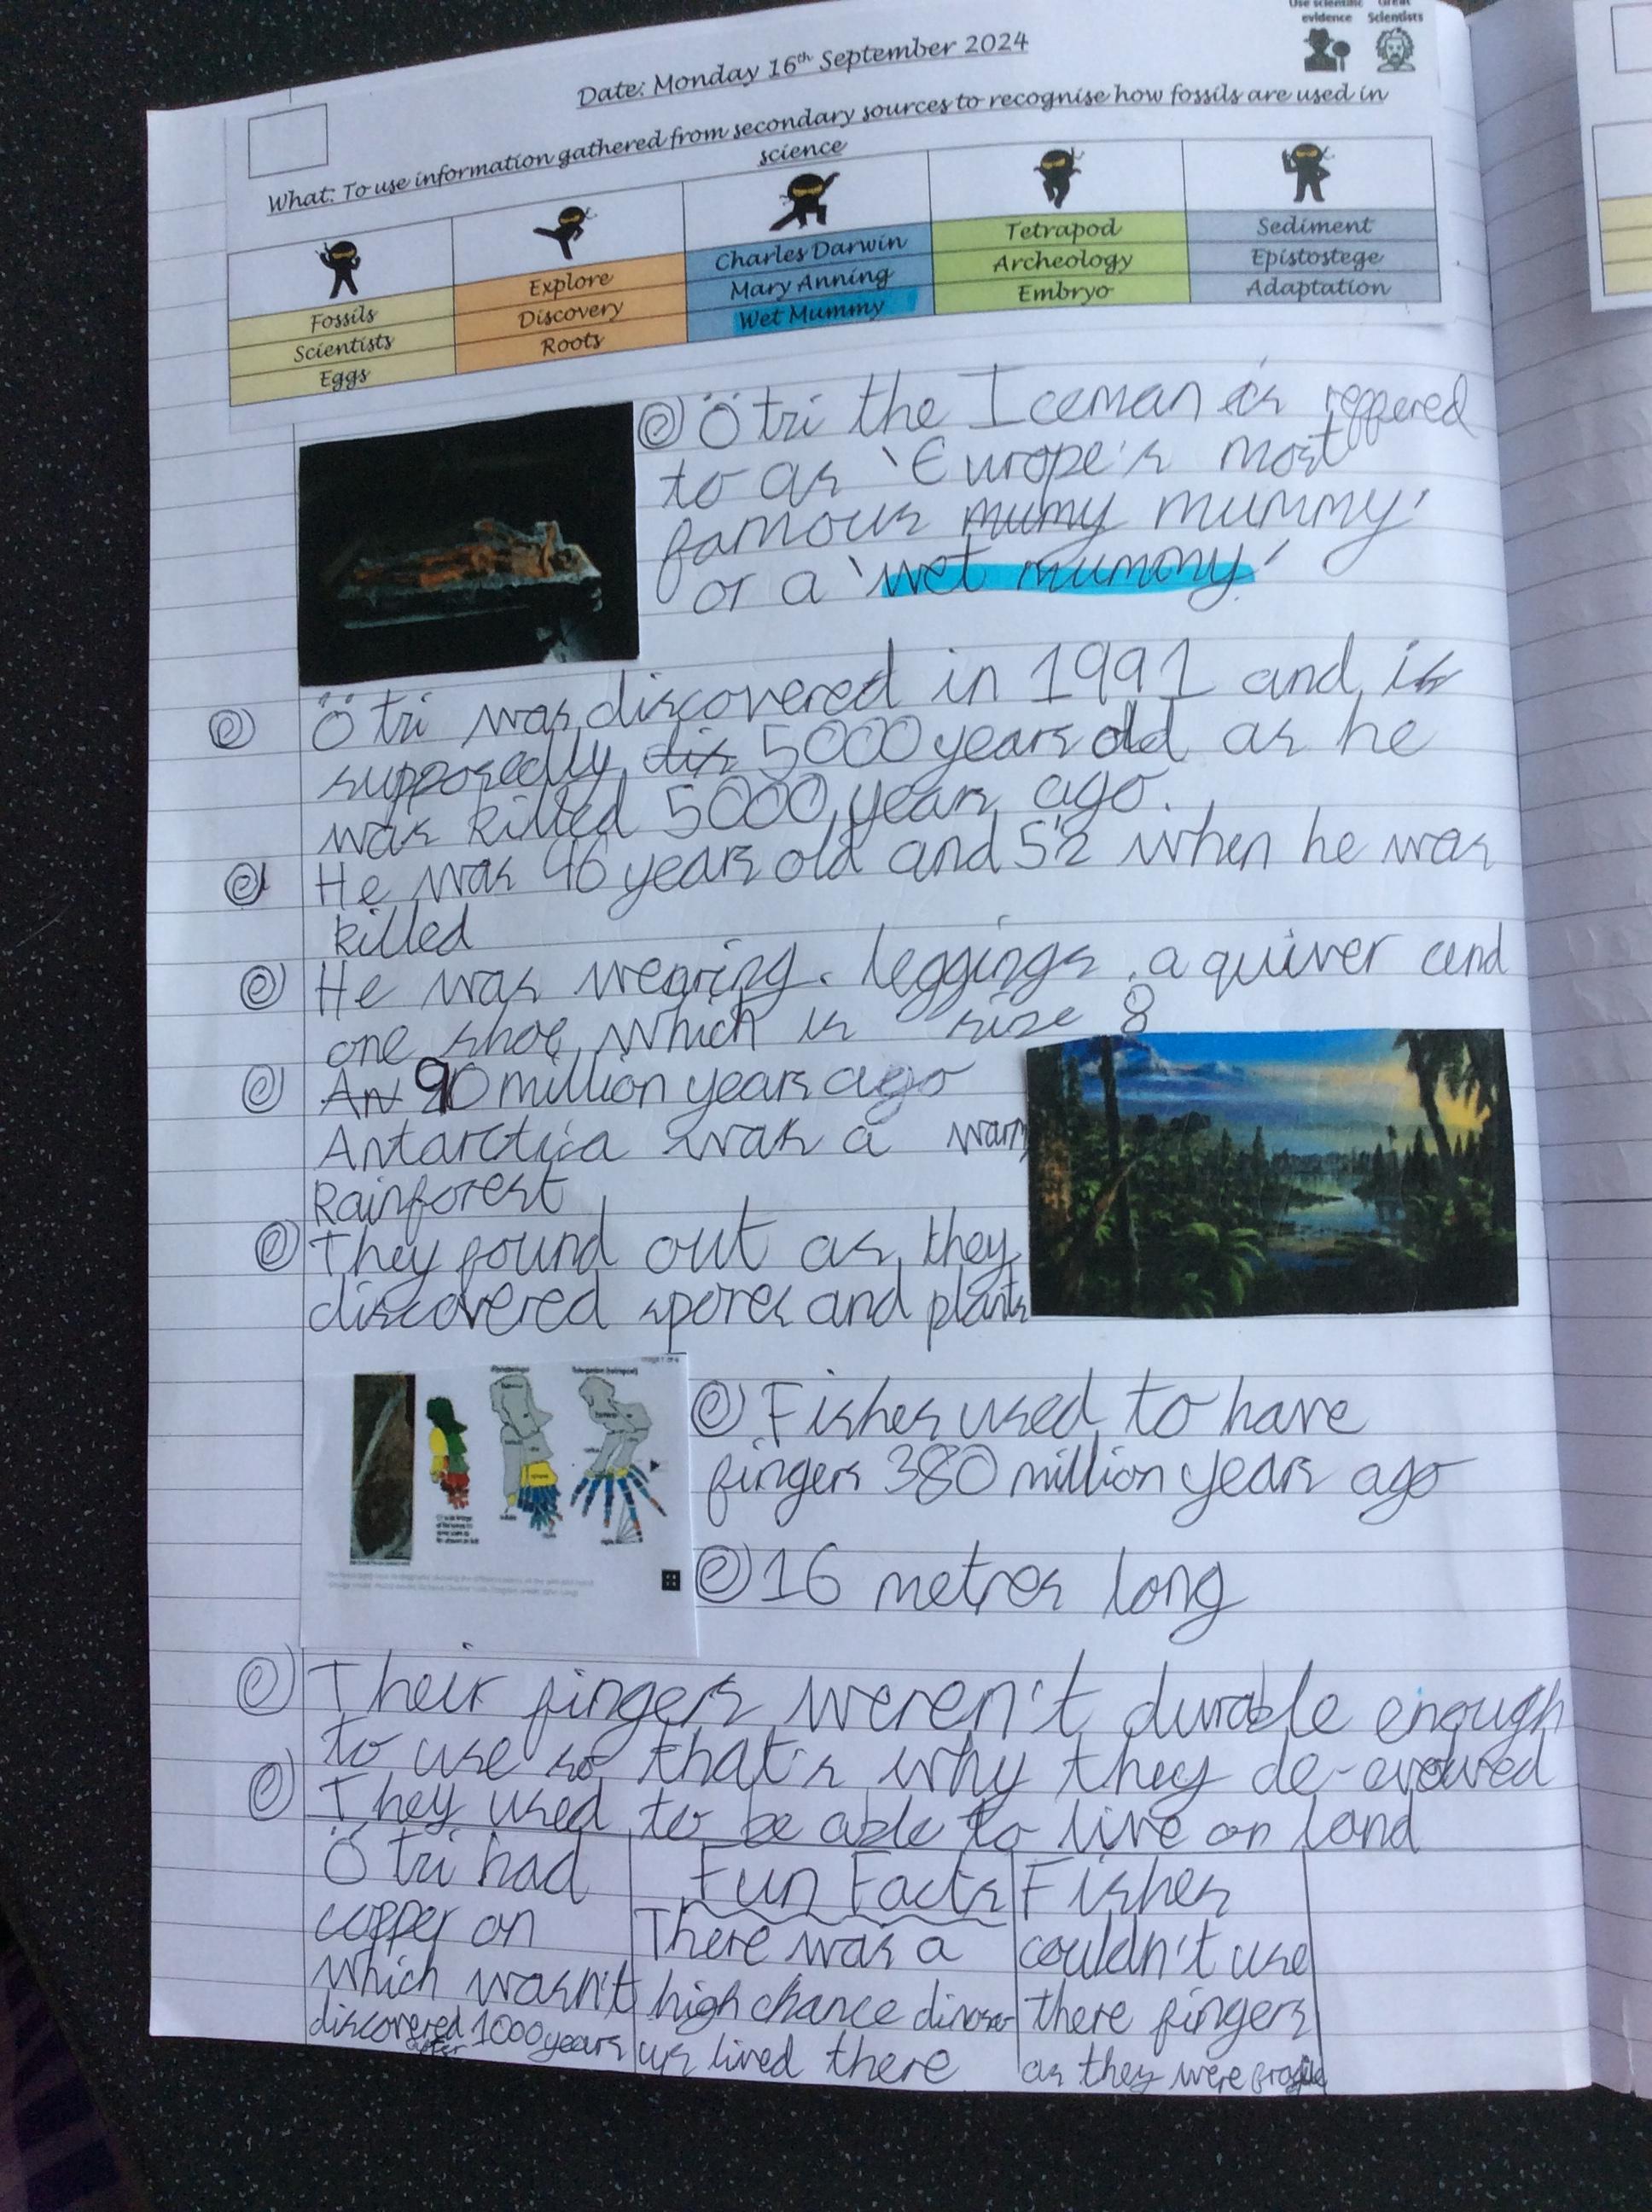 Use scientific Great
evidence Scientists
Date: Monday 16th September 2024
What: To use information gathered from secondary sources to recognise how fossils are used in
science
Fossils
Scientists
Eggs
Explore
Discovery
Roots
Charles Darwin
Mary Anning
Wet Mummy
Tetrapod
Archeology
Embryo
Sediment
Epistostege
Adaptation
Ötzi the Iceman is reffered
to as 'Europe's most
famous mumy mummy'
or a 'wet mummy'
Ötzi was discovered in 1991 and is
supposedly dis 5000 years old as he
was killed 5000 years ago.
He was 46 years old and 5'2 when he was
killed
He was wearing. leggings, a quiver and
one shoe which is size 8
An 90 million years ago
Antarctica was a warm
Rainforest
They found out as they
discovered spores and plants
Fishes used to have
fingers 380 million years ago
16 metres long
Their fingers weren't durable enough
to use so that's why they de-evolved
They used to be able to live on land
Ötzi had
copper on
which wasn't
discovered 1000 years
after
Fun Facts
There was a
high chance dinosa-
urs lived there
Fishes
couldn't use
there fingers
as they were fragile